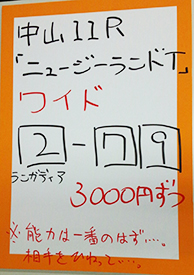 中山11R
「ニュージーランドT」
ワイド
2-79
ランガディア
3000円ずつ
※能力は一番のはず…。
相手をひねって…。